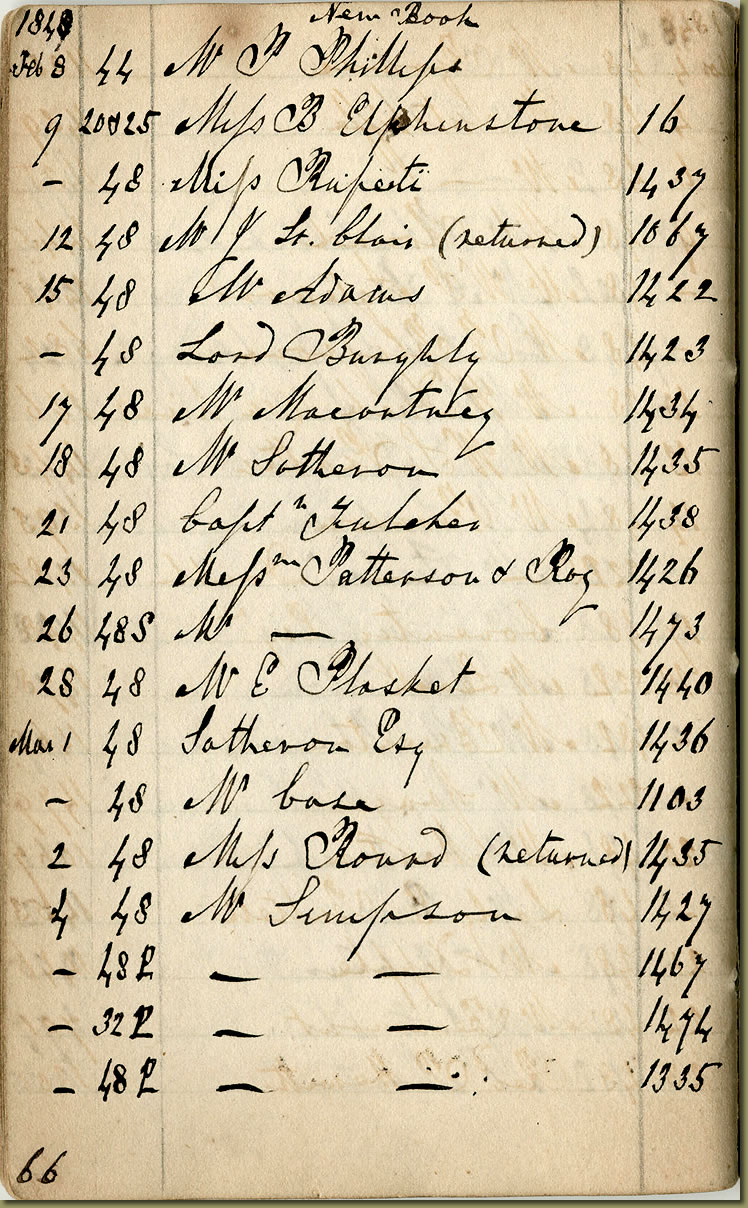 1848 New Book
Feb 8 44 Mr P Phillips
9 20&25 Miss B Elphinstone 16
– 48 Miss Ruperti 1437
12 48 Mr J St. Clair (returned) 1067
15 48 Mr Adams 1422
– 48 Lord Burghly 1423
17 48 Mr Macartney 1434
18 48 Mr Sotheron 1435
21 48 Captn Fulcher 1438
23 48 Messrs Patterson & Roy 1426
26 48S Mr — 1473
28 48 Mr E Plasket 1440
Mar 1 48 Sotheron Esq 1436
– 48 Mr Case 1103
2 48 Miss Round (returned) 1435
4 48 Mr Simpson 1427
– 48P — — 1467
– 32P — — 1474
– 48P — — 1335
66